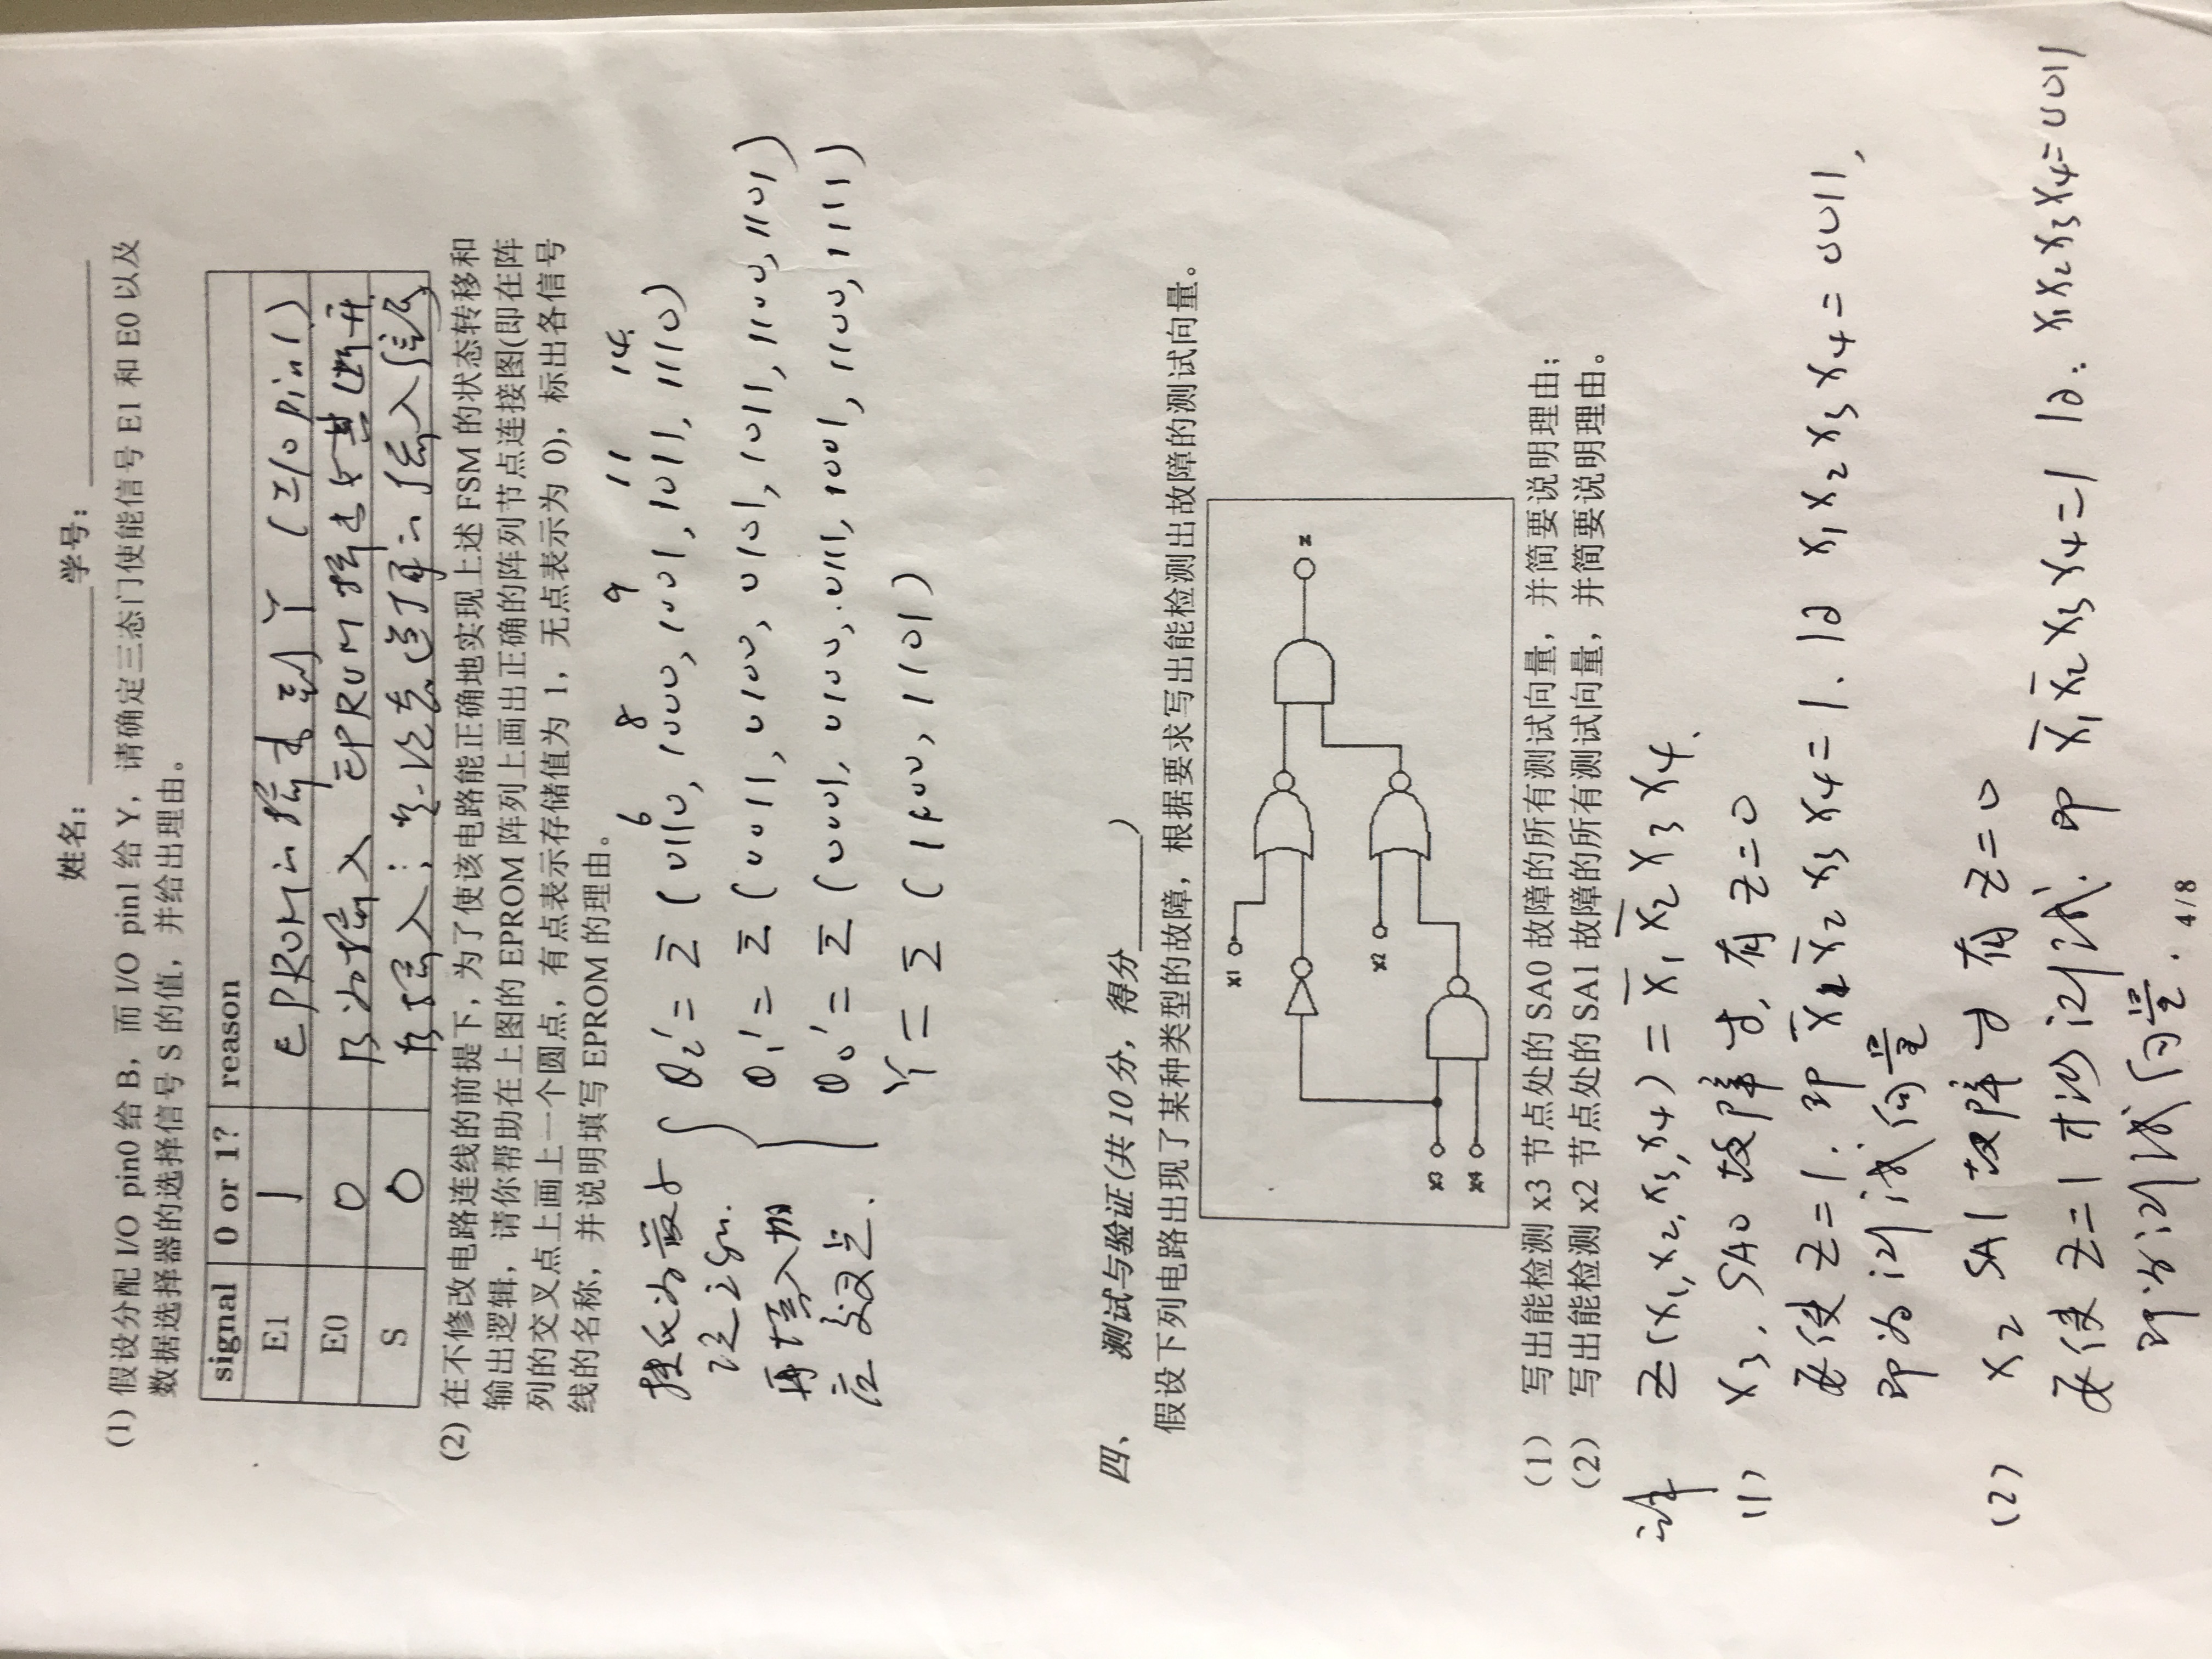 姓名：__________学号：__________
(1) 假设分配 I/O pin0 给 B，而 I/O pin1 给 Y，请确定三态门使能信号 E1 和 E0 以及
数据选择器的选择信号 S 的值，并给出理由。
signal 0 or 1? reason
E1 1 EPROM的输出到 Y (I/O pin1)
E0 0 B为输入 EPROM输出与其断开
S 0 B输入；
(2) 在不修改电路连线的前提下，为了使该电路能正确地实现上述 FSM 的状态转移和
输出逻辑，请你帮助在上图的 EPROM 阵列上画出正确的阵列节点连接图(即在阵
列的交叉点上画上一个圆点，有点表示存储值为 1，无点表示为 0)，标出各信号
线的名称，并说明填写 EPROM 的理由。
6 8 9 11 14.
Q2' = Σ (0110, 1000, 1001, 1011, 1110)
Q1' = Σ (0011, 0100, 0101, 1011, 1100, 1101)
Q0' = Σ (0001, 0100, 0111, 1001, 1100, 1111)
Y = Σ (1100, 1101)
为最小
再填入相
应交叉点.
四、 测试与验证(共 10 分，得分______)
假设下列电路出现了某种类型的故障，根据要求写出能检测出故障的测试向量。
x1
z
x2
x3
x4
（1） 写出能检测 x3 节点处的 SA0 故障的所有测试向量，并简要说明理由；
（2） 写出能检测 x2 节点处的 SA1 故障的所有测试向量，并简要说明理由。
Z(x1, x2, x3, x4) = x̄1 x̄2 x3 x4.
(1) x3, SA0 故障时, 有 Z=0
要使 Z=1. 即 x̄1 x̄2 x3 x4 = 1. 则 x1 x2 x3 x4 = 0011,
即为测试向量
(2) x2 SA1 故障时 有 Z=0
要使 Z=1 才能测试. 即 x̄1 x̄2 x3 x4 = 1 则: x1 x2 x3 x4 = 0011
即为测试向量.
4 / 8